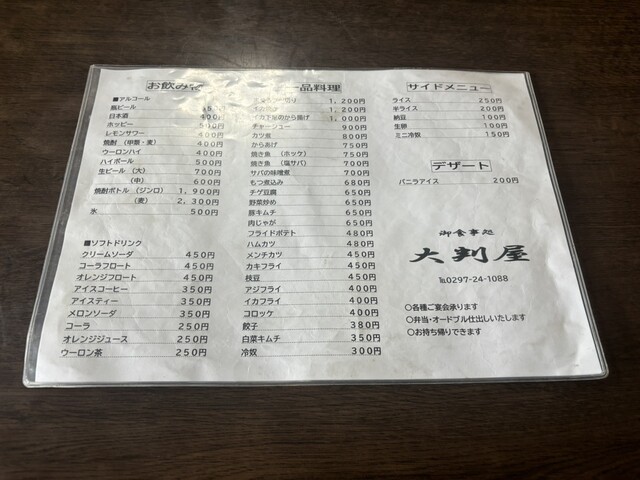 お飲み物
■アルコール
瓶ビール
日本酒 400円
ホッピー 500円
レモンサワー 400円
焼酎 (甲類・麦) 400円
ウーロンハイ 400円
ハイボール 500円
生ビール (大) 700円
(中) 600円
焼酎ボトル (ジンロ) 1,900円
(麦) 2,300円
氷 500円
■ソフトドリンク
クリームソーダ 450円
コーラフロート 450円
オレンジフロート 450円
アイスコーヒー 350円
アイスティー 350円
メロンソーダ 350円
コーラ 250円
オレンジジュース 250円
ウーロン茶 250円
一品料理
1,200円
1,200円
イカ下足のから揚げ 1,000円
チャーシュー 900円
カツ煮 800円
からあげ 750円
焼き魚 (ホッケ) 750円
焼き魚 (塩サバ) 700円
サバの味噌煮 700円
もつ煮込み 680円
チゲ豆腐 650円
野菜炒め 650円
豚キムチ 650円
肉じゃが 650円
フライドポテト 480円
ハムカツ 480円
メンチカツ 450円
カキフライ 450円
枝豆 450円
アジフライ 400円
イカフライ 400円
コロッケ 400円
餃子 380円
白菜キムチ 350円
冷奴 300円
サイドメニュー
ライス 250円
半ライス 200円
納豆 100円
生卵 100円
ミニ冷奴 150円
デザート
バニラアイス 200円
御食事処
大判屋
℡0297-24-1088
○各種ご宴会承ります
○弁当・オードブル仕出しいたします
○お持ち帰りできます